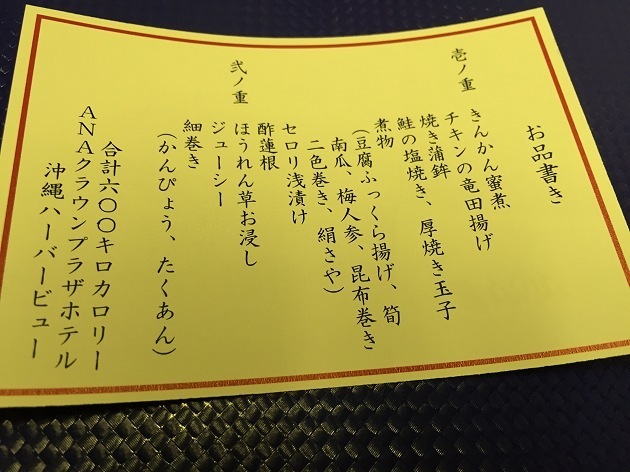 お品書き
壱ノ重
きんかん蜜煮
チキンの竜田揚げ
焼き蒲鉾
鮭の塩焼き、厚焼き玉子
煮物
(豆腐ふっくら揚げ、筍
南瓜、梅人参、昆布巻き
二色巻き、絹さや)
弐ノ重
セロリ浅漬け
酢蓮根
ほうれん草お浸し
ジューシー
細巻き
(かんぴょう、たくあん)
合計六〇〇キロカロリー
ANAクラウンプラザホテル
沖縄ハーバービュー